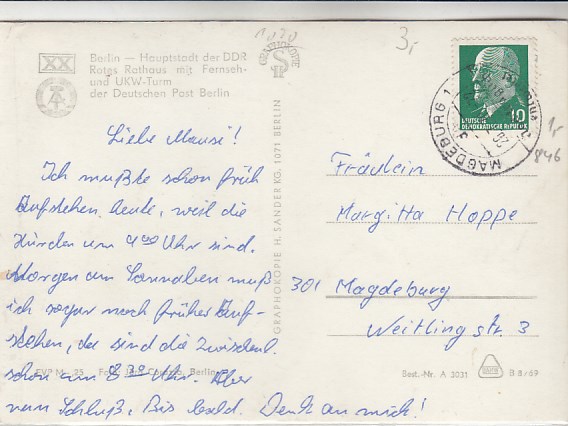 1070
3,
XX
Berlin — Hauptstadt der DDR
Rotes Rathaus mit Fernseh-
und UKW-Turm
der Deutschen Post Berlin
GRAPHOKOPIE
GRAPHOKOPIE H. SANDER KG. 1071 BERLIN
10
DEUTSCHE
DEMOKRATISCHE REPUBLIK
MAGDEBURG 1
1,
846
Liebe Mausi!
Ich mußte schon früh
Aufstehen heute, weil die
um 9 00 Uhr sind.
Morgen am Sonnabend muß
ich sogar noch früher Auf-
stehen, da sind die
schon um 8 30 Uhr. Aber
nun Schluß, Bis bald. Denk an mich!
Fräulein
Margitta Hoppe
301 Magdeburg
Weitlingstr. 3
EVP M -,25 Foto: Berlin
Best.-Nr. A 3031
B 8/69